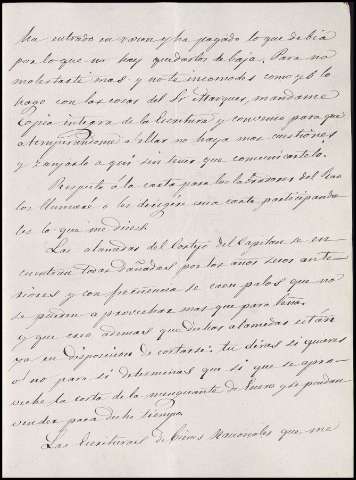 ha entrado en razon y ha pagado lo que debia
por lo que no hay que darlos de baja. Para no
molestarte mas y no te incomodes como yo lo
hago con las cosas del Sr Marques, mandame
copia integra de la Escritura y convenio para que
atemperandome a ellas no haya mas cuestiones
y zanjarlo aqui sin tener que comunicartelo.
Respeto á la carta para los labradores del
los llamaré o les dirigiré una carta participando
les lo que me dices.
Las alamedas del Cortijo del Capitan se en
cuentran todas dañadas por los años secos ante
riores y con frecuencia se caen palos que no
se pueden aprovechar mas que para leña.
y que creo ademas que dichas alamedas están
ya en disposicion de cortarse: tu dirás si quieres
o no para si determinas que si que se apro-
veche la corta de la menguante de Enero y se puedan
vender para dicho tiempo.
Las Escrituras de Bienes Nacionales que me